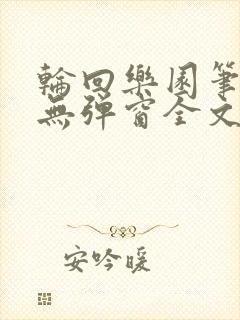 輪回樂園筆
無彈窗全文
安吟暖